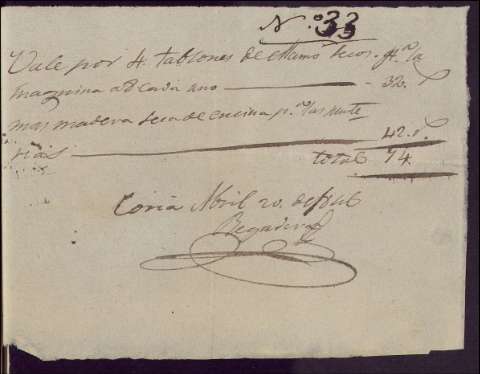 N.º 33
Vale por 4 tablones de alamo secos p.ª la
maquina a 8 cada uno 32.
mas madera seca de encina p.ª las
42.
total 74.
Coria Abril 20. de